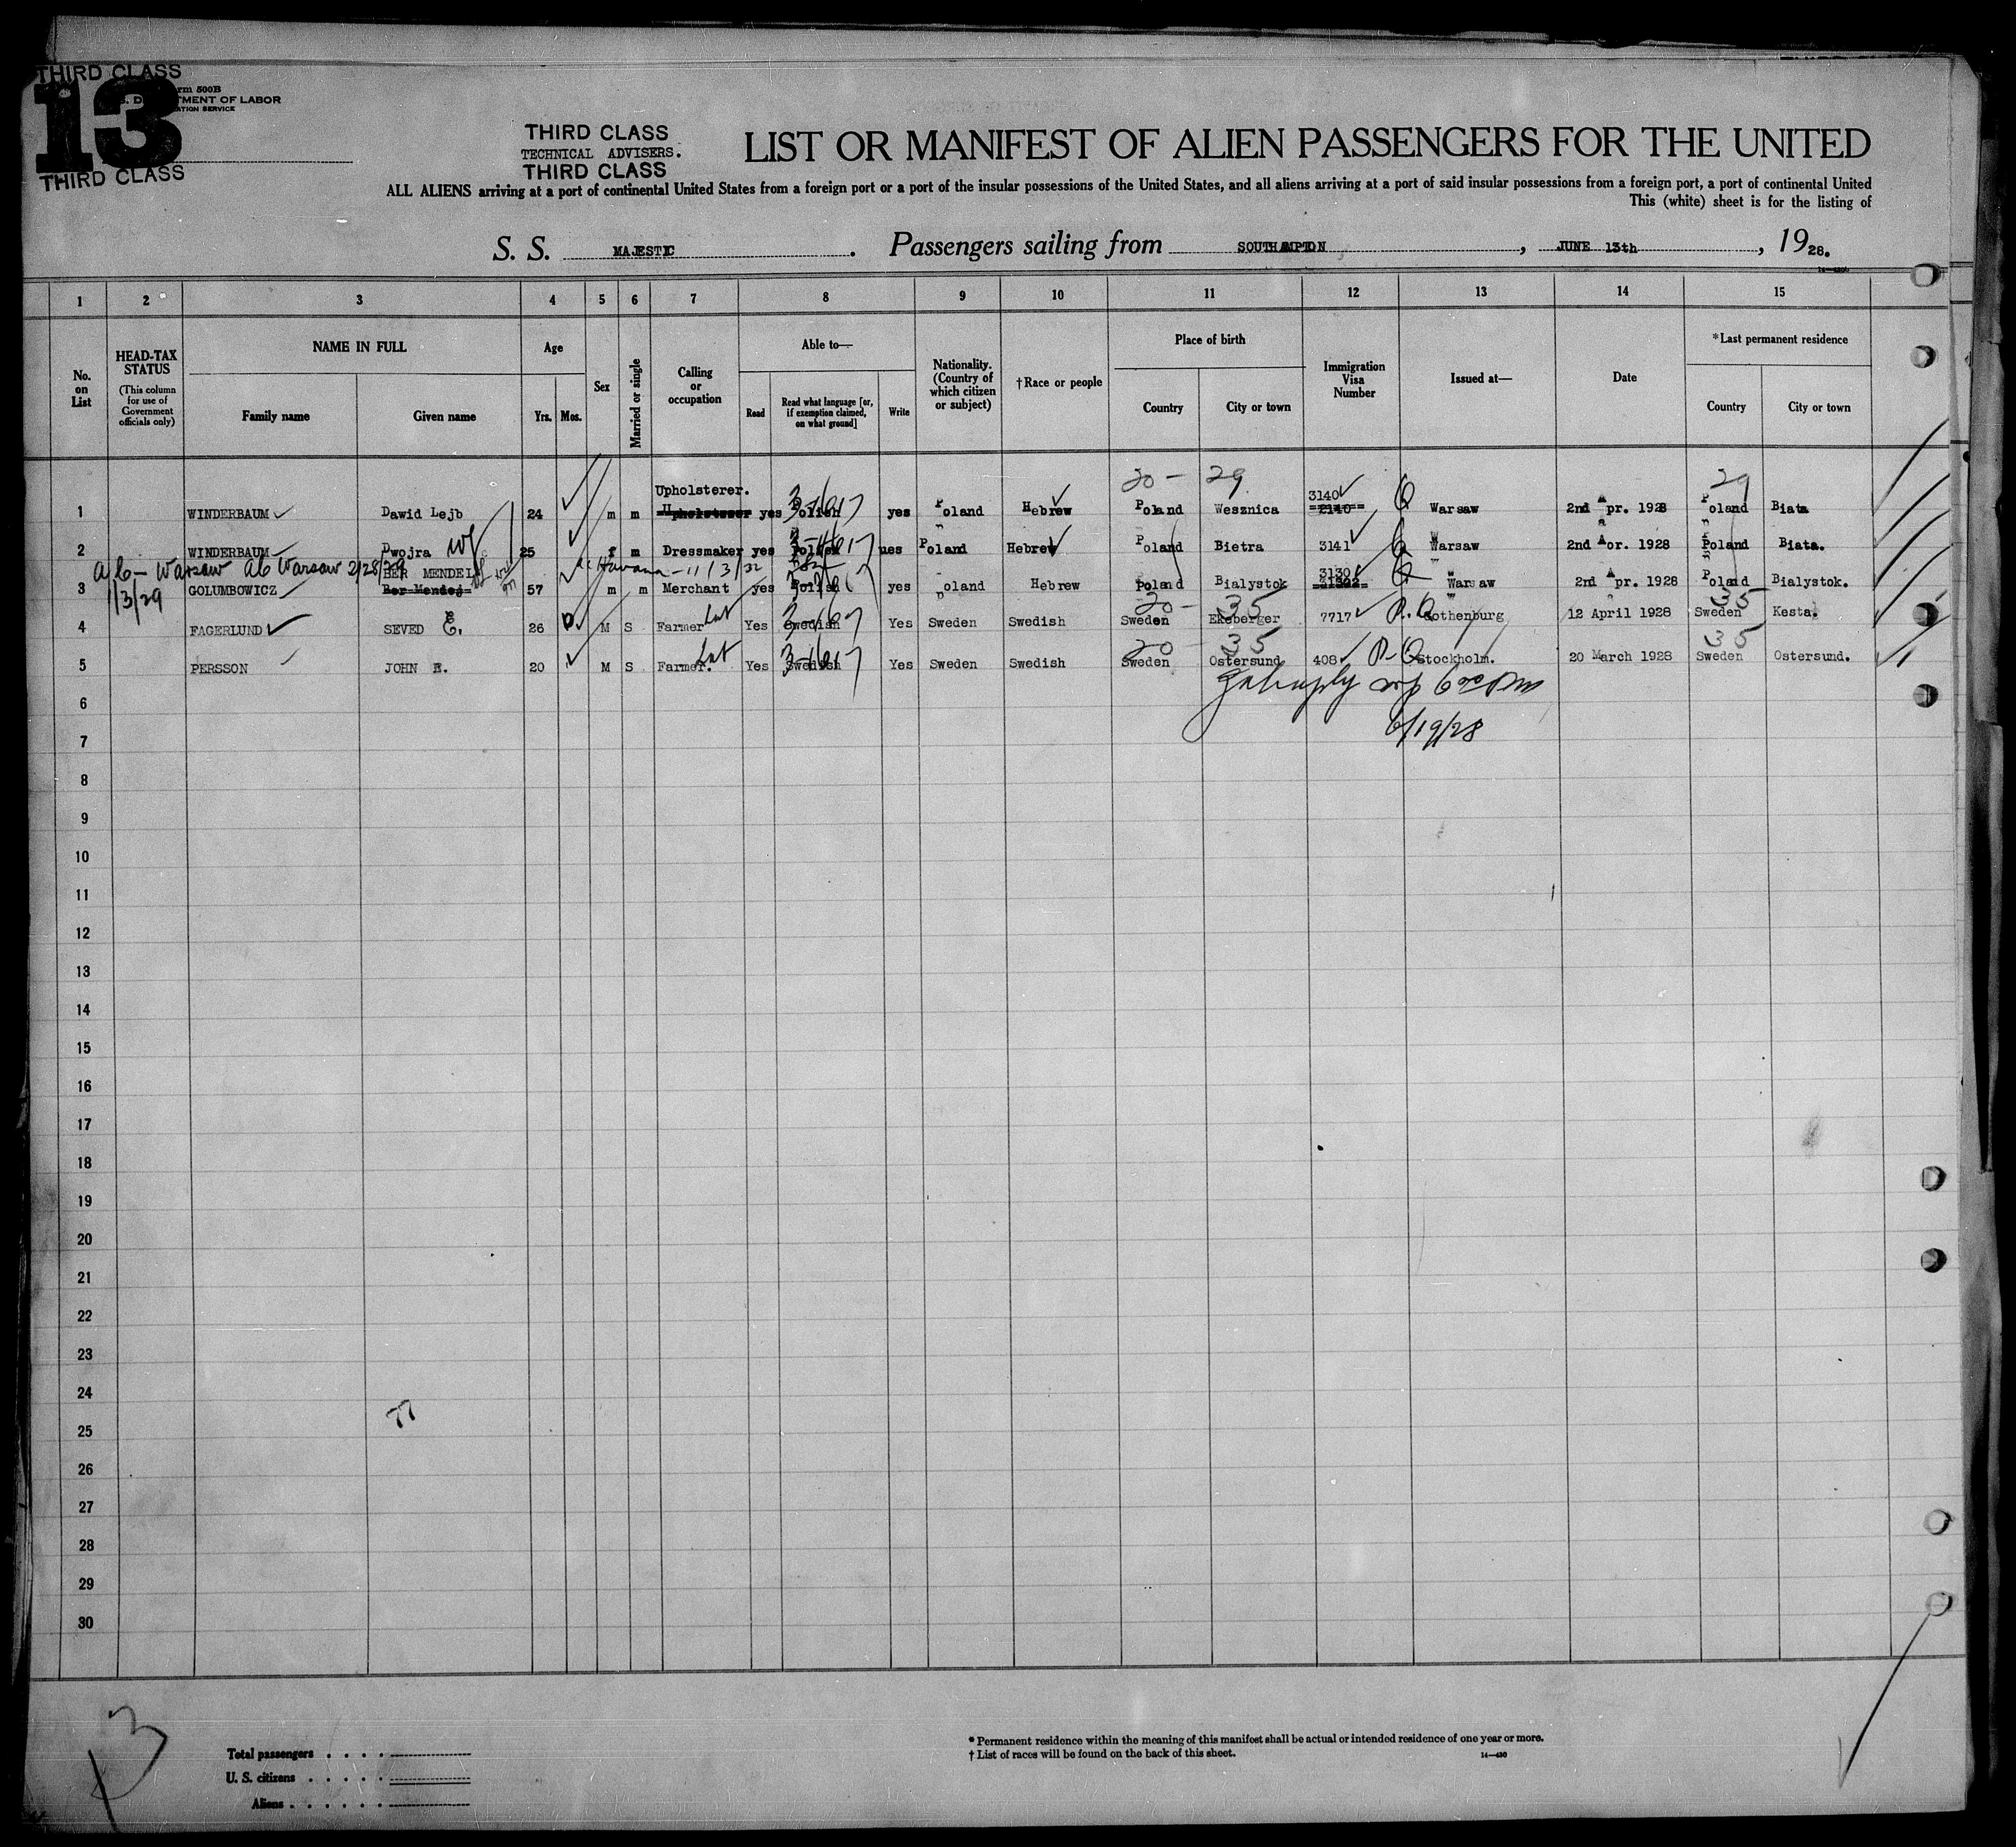 THIRD CLASS
13
rm 500B
MENT OF LABOR
ATION SERVICE
THIRD CLASS
THIRD CLASS
TECHNICAL ADVISERS.
THIRD CLASS
LIST OR MANIFEST OF ALIEN PASSENGERS FOR THE UNITED
ALL ALIENS arriving at a port of continental United States from a foreign port or a port of the insular possessions of the United States, and all aliens arriving at a port of said insular possessions from a foreign port, a port of continental United
This (white) sheet is for the listing of
S. S. MAJESTIC. Passengers sailing from SOUTHAMPTON, JUNE 13th, 1928.
1 2 3 4 5 6 7 8 9 10 11 12 13 14 15
No. on List
HEAD-TAX STATUS (This column for use of Government officials only)
NAME IN FULL Family name Given name
Age Yrs. Mos.
Sex
Married or single
Calling or occupation
Able to— Read Read what language [or, if exemption claimed, on what ground] Write
Nationality. (Country of which citizen or subject)
†Race or people
Place of birth Country City or town
Immigration Visa Number
Issued at—
Date
*Last permanent residence Country City or town
20 - 29 29
Upholsterer. 3140
1 WINDERBAUM Dawid Lejb 24 m m Upholsterer yes Polish yes Poland Hebrew Poland Wesznica 2140 Q Warsaw 2nd Apr. 1928 Poland Biata
2 WINDERBAUM Dwojra wf 25 f m Dressmaker yes Polish ues Poland Hebrew Poland Bietra 3141 Q Warsaw 2nd Aor. 1928 Poland Biata.
a/c - Warsaw ab Warsaw 2/28/29 BER MENDEL Havana - 11/3/32 3130
1/3/29
3 GOLUMBOWICZ Ber Mendej 57 m m Merchant yes Polish yes Poland Hebrew Poland Bialystok Q Warsaw 2nd Apr. 1928 Poland Bialystok.
20 - 35 35
4 FAGERLUND SEVED E. 26 M S Farmer Yes Swedish Yes Sweden Swedish Sweden Ekeberger 7717 Gothenburg 12 April 1928 Sweden Kesta.
20 35 35
5 PERSSON JOHN E. 20 M S Farmer. Yes Swedish Yes Sweden Swedish Sweden Ostersund 408 Stockholm. 20 March 1928 Sweden Ostersund.
6
6/19/28
7
8
9
10
11
12
13
14
15
16
17
18
19
20
21
22
23
24
77
25
26
27
28
29
30
13
Total passengers
U. S. citizens
Aliens
* Permanent residence within the meaning of this manifest shall be actual or intended residence of one year or more.
† List of races will be found on the back of this sheet. 14—430